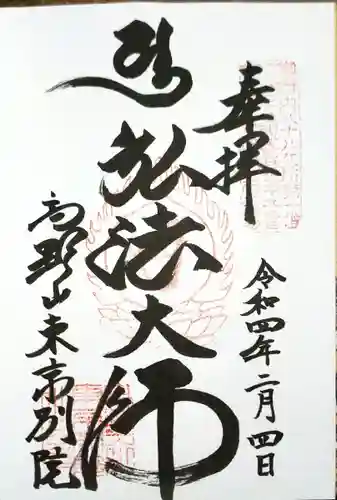 奉拝
令和四年二月四日
弘法大師
高野山東京別院